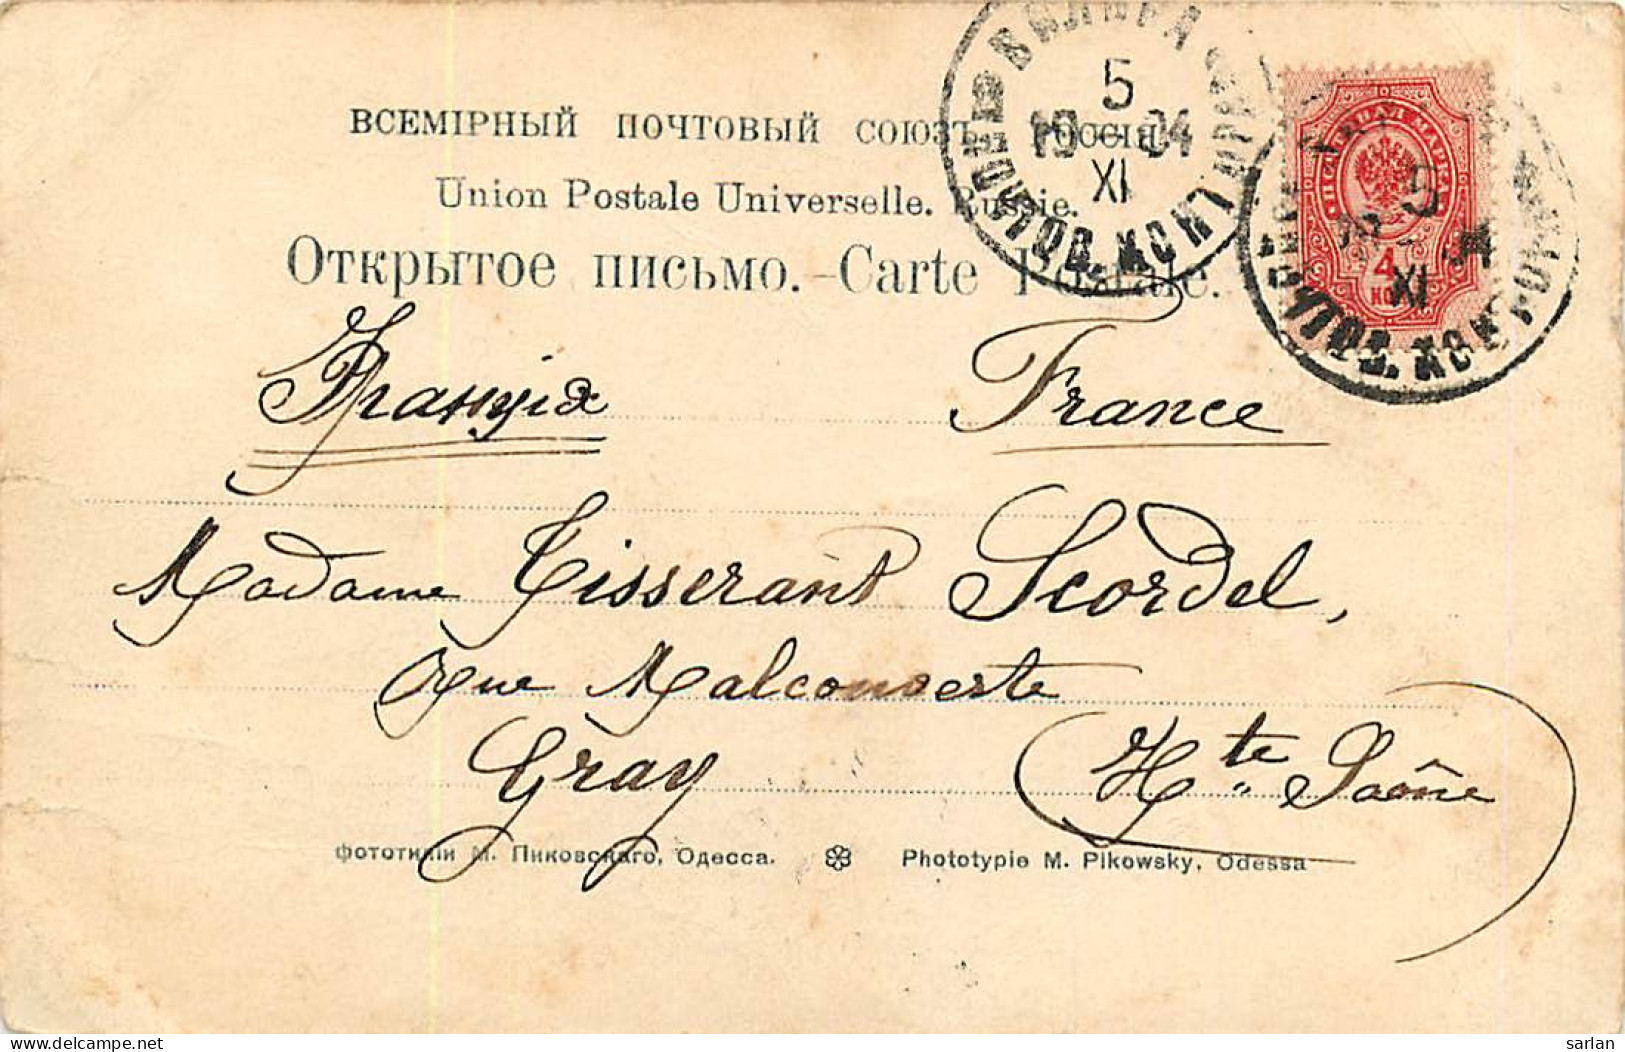 ВСЕМІРНЫЙ ПОЧТОВЫЙ СОЮЗЪ. РОССІЯ.
Union Postale Universelle. Russie.
Открытое письмо.-Carte Postale.
5
19 04
XI
5
XI
4
Франція France
Madame Tisserant Scordel,
rue Malcouverte
Gray (Hte Saône)
Фототипія М. Пиковскаго, Одесса. Phototypie M. Pikowsky, Odessa
sarlan
delcampe.net